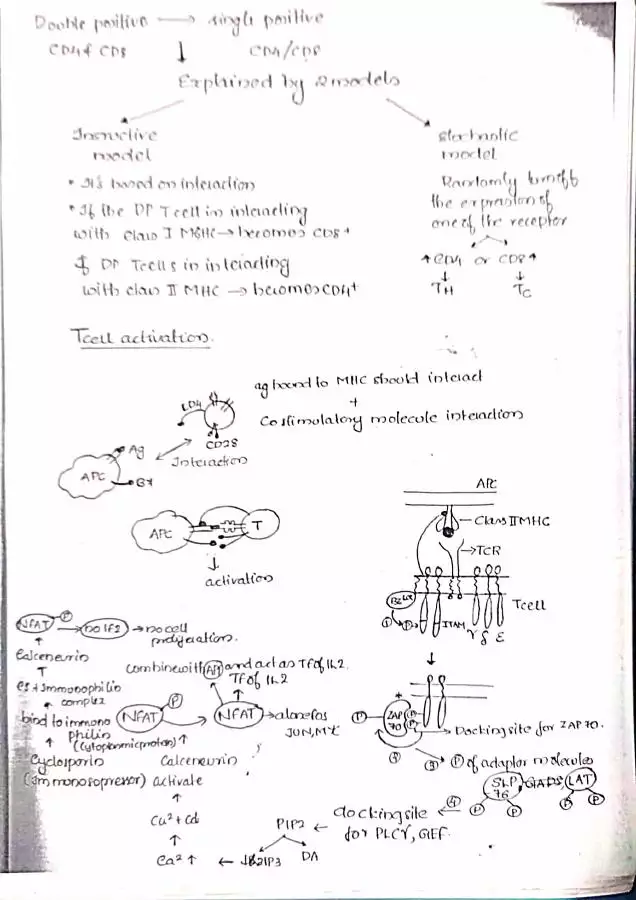 Double positive → single positive
CD4 & CD8 ↓ CD4/CD8
Explained by 2 models
Instructive
model
• It's based on interaction
• If the DP T cell in interacting
with class I MHC → becomes CD8+
If DP T cells in interacting
with class II MHC → becomes CD4+
stochastic
model
Randomly turn off
the expression of
one of the receptor
↑CD4 or CD8↑
↓ ↓
TH TC
T cell activation.
ag bound to MHC should interact
+
Costimulatory molecule interaction
CD4
CD28
Ag
APC
B7
Interaction
APC T
↓
activation
APC
Class II MHC
TCR
T cell
P P ITAM γ δ ε
↓
NFAT P → no IL2 → no cell
proliferation.
↑
Calceneurin
↑
cs + Immonophilin
↑ complex
bind to immuno
philin
(cytoplasmic protein)
↑
Cyclosporin
(Immonosopressor)
combine with AP1 and act as TF of IL2.
TF of IL2
↑
NFAT P → NFAT → alone fas
↑
Calceneurin
activate
↑
Ca2+ Cd
↑
Ca2 ↑ ← IP3 DA
PIP2 ← docking site
for PLCγ, GEF.
ZAP
70 P P P
Docking site for ZAP 70.
P of adaptor molecules
SLP
76 GADS LAT
P P P P